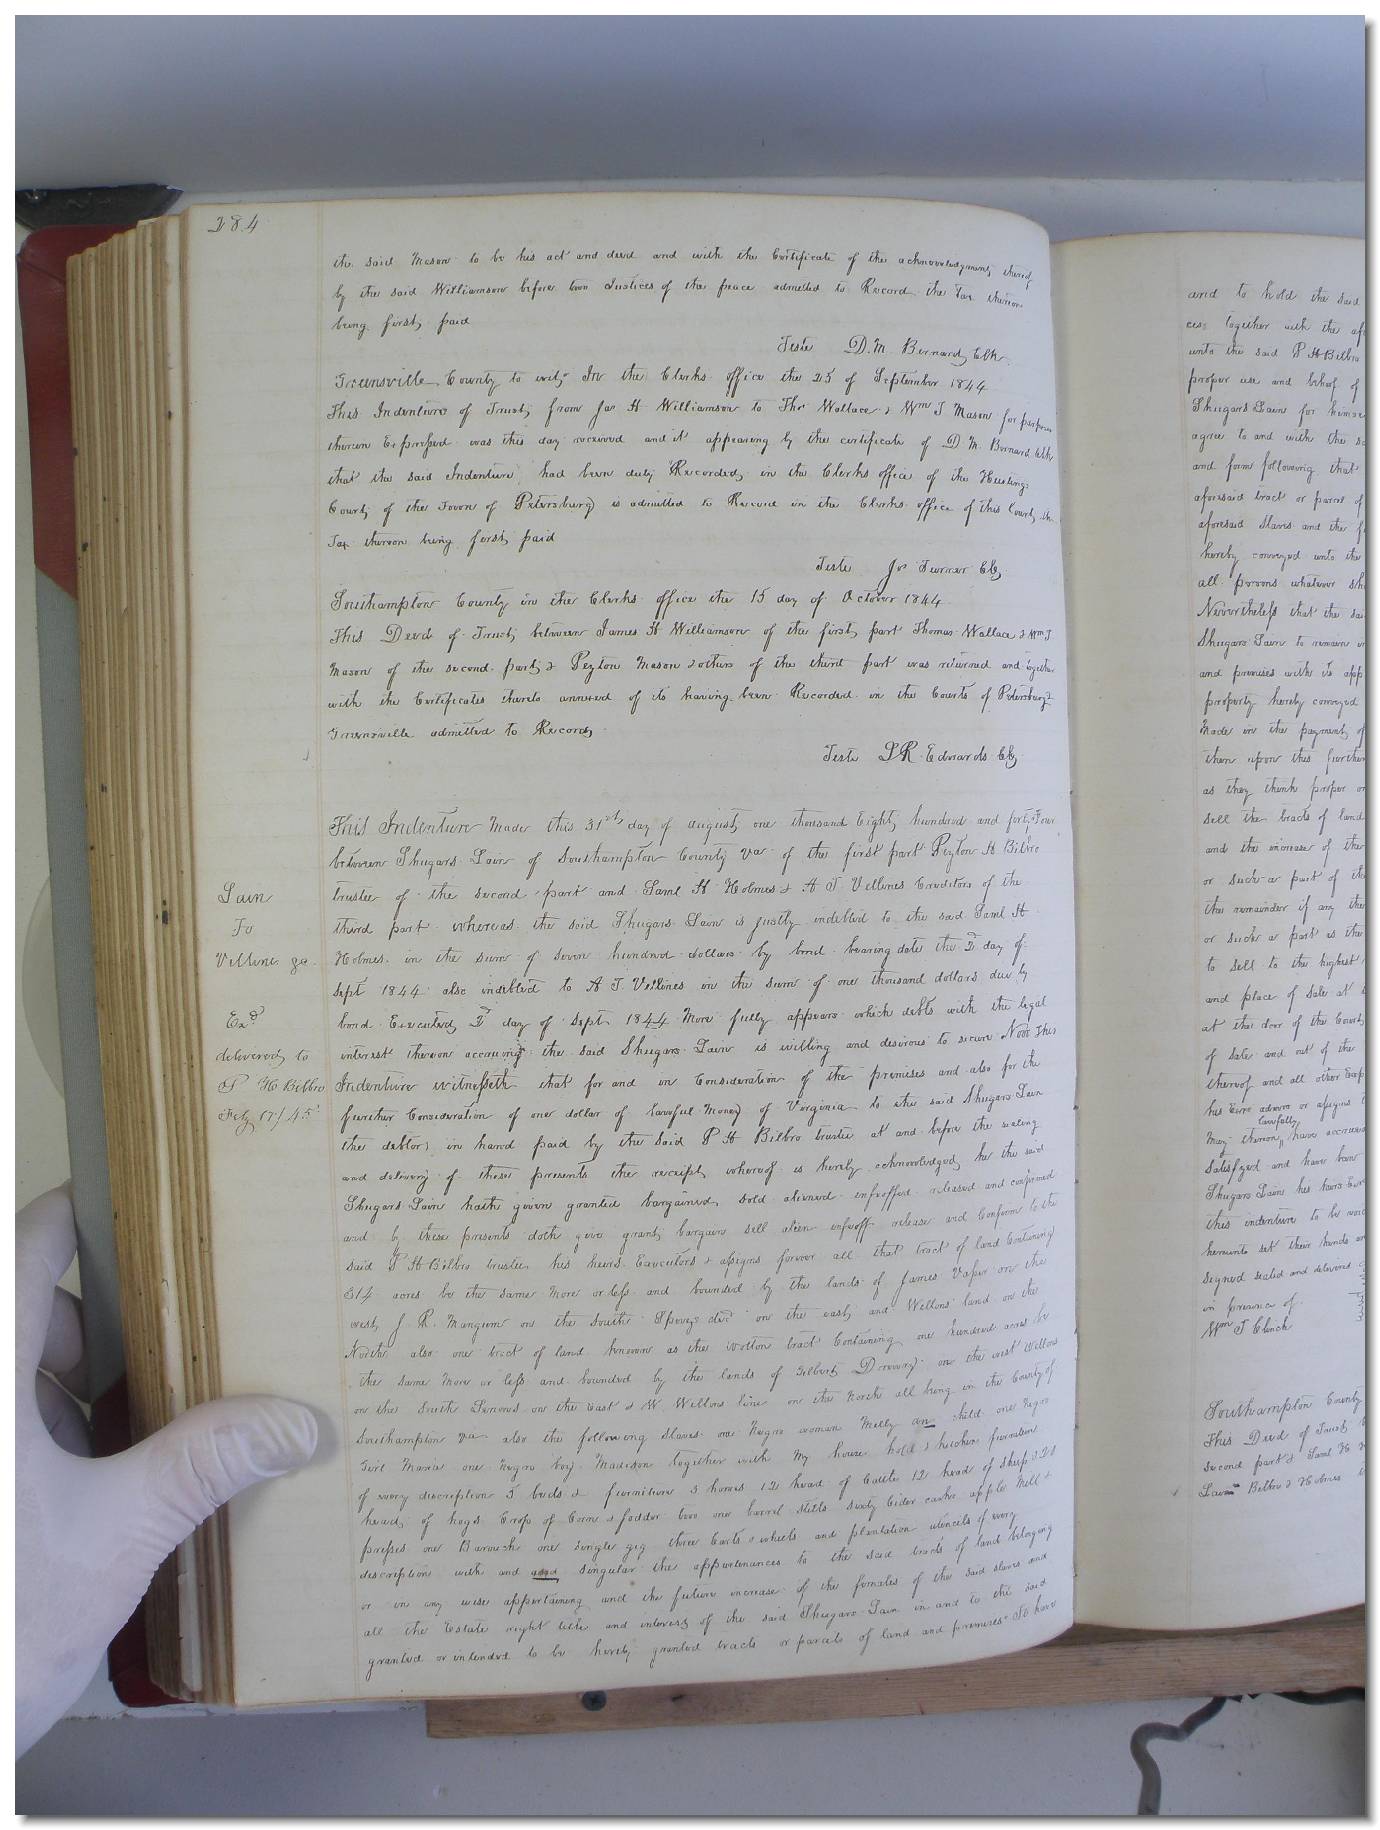 284
the said Mason to be his act and deed and with the Certificate of the acknowledgment thereof
by the said Williamson before two Justices of the peace admitted to Record the Tax thereon
being first paid
Teste D. M. Bernard Clk
Greensville County to wit, In the Clerks office the 25 of September 1844
This Indenture of Trust from Jas H Williamson to Thos Wallace & Wm J Mason for purposes
therein Expressed was this day received and it appearing by the certificate of D M. Bernard Clk
that the said Indenture had been duly Recorded in the Clerks office of the Hustings
Court of the Town of Petersburg is admitted to Record in the Clerks office of this County the
Tax thereon being first paid
Teste Jas Turner Clk
Southampton County in the Clerks office the 15 day of October 1844
This Deed of Trust between James H Williamson of the first part Thomas Wallace & Wm J
Mason of the second part & Peyton Mason & others of the third part was returned and together
with the Certificates thereto annexed of its having been Recorded in the Courts of Petersburg &
Greensville admitted to Record
Teste L R Edwards Clk
This Indenture Made this 31st day of august one thousand Eight hundred and forty Four
between Shugars Lain of Southampton County Va of the first part Peyton H Bilbro
trustee of the second part and Saml H Holmes & A J Vellines Creditors of the
third part whereas the said Shugars Lain is justly indebted to the said Saml H
Holmes in the sum of seven hundred dollars by bond bearing date the 2d day of
Sept 1844 also indebted to A J Vellines in the sum of one thousand dollars due by
bond Executed 2d day of Sept 1844 More fully appears which debts with the legal
interest thereon accruing the said Shugars Lain is willing and desirous to secure Now This
Indenture witnesseth that for and in Consideration of the premises and also for the
further Consideration of one dollar of lawful Money of Virginia to the said Shugars Lain
the debtor in hand paid by the said P H Bilbro trustee at and before the sealing
and delivery of these presents the receipt whereof is hereby acknowledged he the said
Shugars Lain hath given granted bargained sold aliened enfeoffed released and confirmed
and by these presents doth give grant bargain sell alien enfeoff release and Confirm to the
said P H Bilbro trustee his heirs Executors & assigns forever all that tract of land Containing
314 acres be the same More or less and bounded by the lands of James Vaser on the
west J. R. Mangum on the South Spiveys decd on the east and Wellons land on the
North also one tract of land known as the Wotton tract Containing one hundred acres be
the same More or less and bounded by the lands of Gilbert Drewry on the west Wellons
on the South on the East & W. Wellons line on the North all being in the County of
Southampton Va also the following slaves one Negro woman Milly an child one Negro
Girl Maria one Negro boy Madison together with My house hold & kitchen furniture
of every description 5 beds & furniture 3 horses 12 head of Cattle 12 head of sheep
head of hogs Crops of Corn & fodder two one barrel stills sixty Cider casks apple Mill &
presses one Barouch one single gig three Carts & wheels and plantation utencels of every
description with and and singular the appurtenances to the said tracts of land belonging
or in any wise appertaining and the future increase of the females of the said slaves and
all the Estate right title and interest of the said Shugars Lain in and to the said
granted or intended to be hereby granted tracts or parcels of land and premises To have
Lain
To
Velline &c
Exd
delivered to
P H Bilbro
Feby 17/45
and to hold the said
ces together with the
unto the said P H Bilbro
proper use and behoof of
Shugars Lain for himself
agree to and with the
and form following that
aforesaid tract or parcel of
aforesaid slaves and the
hereby conveyed unto the
all persons whatever
Nevertheless that the
Shugars Lain to remain
and premises with its app
property hereby conveyed
Made in the payment of
then upon this further
as they think proper or
sell the tracts of land
and the increase of the
or such a part of
the remainder if any the
or such a part as the
to sell to the highest
and place of sale at
at the door of the Court
of sale and out of the
thereof and all other Exp
his Exrs admrs or assigns
lawfully
May thereon have accrued
Satisfyed and have been
Shugars Lain his heirs
this indenture to be void
hereunto set their hands
signed sealed and delivered
in presence of
Wm T Clinch
Southampton County
This Deed of Trust
second part & Saml H
Lain Bilbro & Holmes